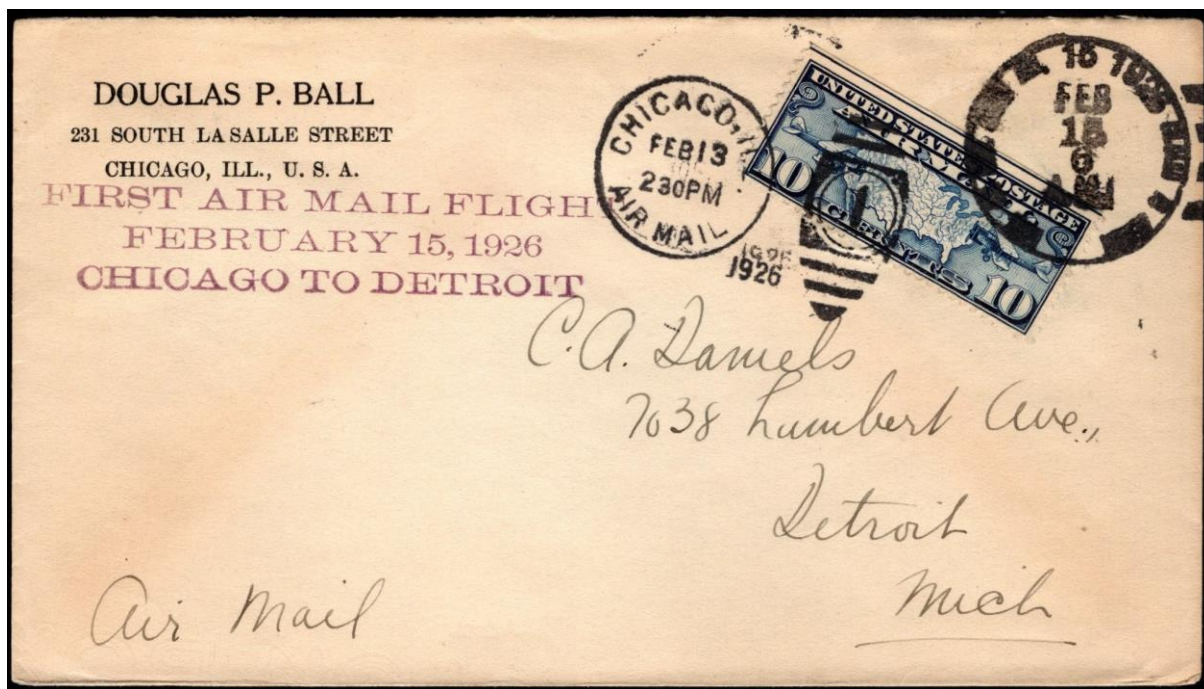 DOUGLAS P. BALL
231 SOUTH LA SALLE STREET
CHICAGO, ILL., U. S. A.
FIRST AIR MAIL FLIGHT
FEBRUARY 15, 1926
CHICAGO TO DETROIT
CHICAGO, ILL
FEB 13
230 PM
AIR MAIL
1926
1926
UNITED STATES POSTAGE
AIR MAIL
10 CENTS 10
1
FEB
15
C. A. Daniels
7038 Lumbert Ave.,
Detroit
Mich
Air Mail